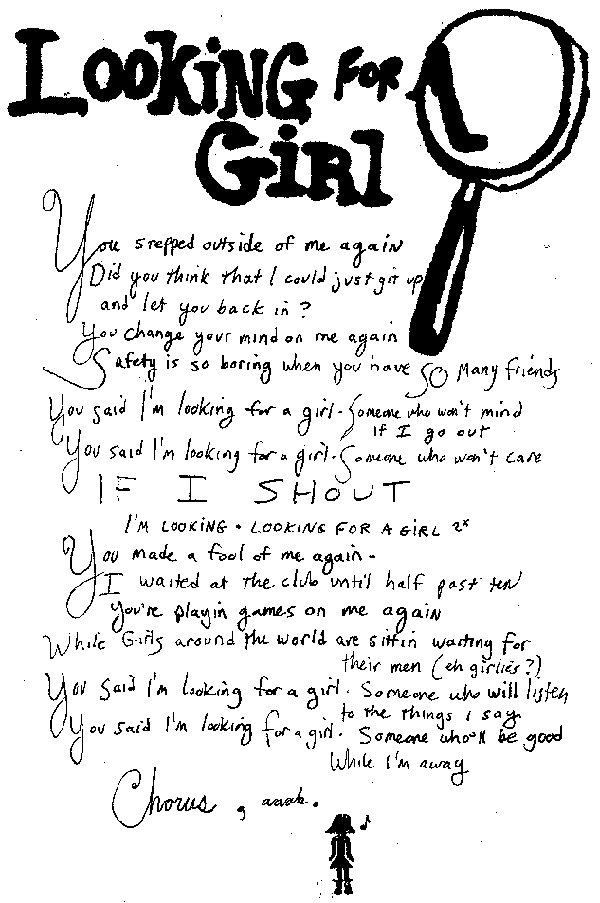 LOOKING FOR A
GIRL
You stepped outside of me again
Did you think that I could just git up
and let you back in?
You change your mind on me again
Safety is so boring when you have SO many friends
You said I'm looking for a girl - Someone who won't mind
if I go out
You said I'm looking for a girl. Someone who won't care
IF I SHOUT
I'M LOOKING - LOOKING FOR A GIRL 2x
You made a fool of me again -
I waited at the club until half past ten
You're playin games on me again
While Girls around the world are sittin waiting for
their men (eh girlies?)
You said I'm looking for a girl. Someone who will listen
to the things i say
You said I'm looking for a girl. Someone who'll be good
While I'm away
Chorus,